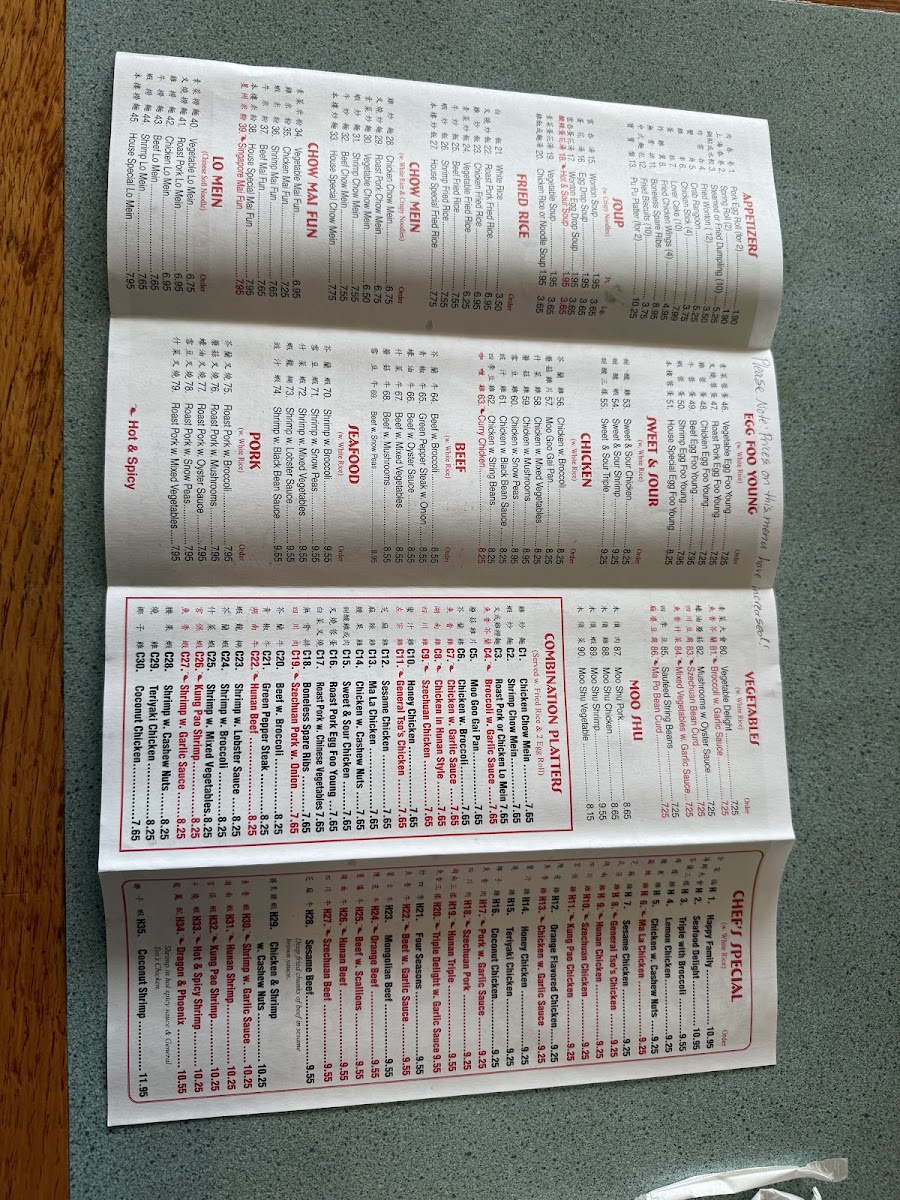 Please Note: Prices on this menu have increased!
APPETIZERS
1. Pork Egg Roll (for 2) 1.90
上海春卷 2. Spring Roll (2) 1.90
3. Steamed or Fried Dumpling (10) 5.25
Fried Wonton (12) 3.50
Crab Rangoon 5.25
Chicken Stick (4) 3.75
Lover Cake (10) 7.99
Fried Chicken Wings (4) 4.95
Boneless Spare Ribs 8.95
Fried Biscuits (10) 3.75
寶寶盤 13. Pu Pu Platter (for 2) 10.25
SOUP
(w. Crispy Noodles)
Pt. Lg.
雲吞湯 15. Wonton Soup 1.95 3.65
蛋花湯 16. Egg Drop Soup 1.95 3.65
雲吞蛋花湯 17. Wonton Egg Drop Soup 1.95 3.65
酸辣湯 18. Hot & Sour Soup 1.95 3.65
19. Vegetable Soup 1.95 3.65
雞飯或麵湯 20. Chicken Rice or Noodle Soup 1.95 3.65
FRIED RICE
Order
白飯 21. White Rice 3.50
叉燒炒飯 22. Roast Pork Fried Rice 6.95
雞炒飯 23. Chicken Fried Rice 6.95
菜炒飯 24. Vegetable Fried Rice 6.25
牛炒飯 25. Beef Fried Rice 7.55
蝦炒飯 26. Shrimp Fried Rice 7.55
本樓炒飯 27. House Special Fried Rice 7.75
CHOW MEIN
(w. White Rice & Crispy Noodles)
Order
雞炒麵 28. Chicken Chow Mein 6.75
叉燒炒麵 29. Roast Pork Chow Mein 6.75
素菜炒麵 30. Vegetable Chow Mein 6.50
蝦炒麵 31. Shrimp Chow Mein 7.55
牛炒麵 32. Beef Chow Mein 7.55
本樓炒麵 33. House Special Chow Mein 7.75
CHOW MAI FUN
素菜米粉 34. Vegetable Mai Fun 6.95
雞米粉 35. Chicken Mai Fun 7.25
蝦米粉 36. Shrimp Mai Fun 7.65
牛米粉 37. Beef Mai Fun 7.65
本樓米粉 38. House Special Mai Fun 7.65
星州米粉 39. Singapore Mai Fun 7.95
LO MEIN
(Chinese Soft Noodle)
Order
素菜撈麵 40. Vegetable Lo Mein 6.75
叉燒撈麵 41. Roast Pork Lo Mein 6.95
雞撈麵 42. Chicken Lo Mein 6.95
牛撈麵 43. Beef Lo Mein 7.65
蝦撈麵 44. Shrimp Lo Mein 7.65
本樓撈麵 45. House Special Lo Mein 7.95
EGG FOO YOUNG
(w. White Rice)
Order
素菜蓉蛋 46. Vegetable Egg Foo Young 7.25
叉燒蓉蛋 47. Roast Pork Egg Foo Young 7.25
雞蓉蛋 48. Chicken Egg Foo Young 7.25
牛蓉蛋 49. Beef Egg Foo Young 7.95
蝦蓉蛋 50. Shrimp Egg Foo Young 7.95
本樓蓉蛋 51. House Special Egg Foo Young 8.25
SWEET & SOUR
(w. White Rice)
Order
甜酸雞 53. Sweet & Sour Chicken 8.25
甜酸蝦 54. Sweet & Sour Shrimp 9.25
甜酸三樣 55. Sweet & Sour Triple 9.25
CHICKEN
(w. White Rice)
Order
芥蘭雞 56. Chicken w. Broccoli 8.25
蘑菇雞片 57. Moo Goo Gai Pan 8.25
什菜雞 58. Chicken w. Mixed Vegetables 8.25
蘑菇雞 59. Chicken w. Mushrooms 8.95
雪豆雞 60. Chicken w. Snow Peas 8.95
豉汁雞 61. Chicken w. Black Bean Sauce 8.25
四季豆雞 62. Chicken w. String Beans 8.25
咖喱雞 63. Curry Chicken 8.25
BEEF
(w. White Rice)
Order
芥蘭牛 64. Beef w. Broccoli 8.55
青椒牛 65. Green Pepper Steak w. Onion 8.55
蠔油牛 66. Beef w. Oyster Sauce 8.55
什菜牛 67. Beef w. Mixed Vegetables 8.55
蘑菇牛 68. Beef w. Mushrooms 8.55
雪豆牛 69. Beef w. Snow Peas 8.95
SEAFOOD
(w. White Rice)
Order
芥蘭蝦 70. Shrimp w. Broccoli 9.55
雪豆蝦 71. Shrimp w. Snow Peas 9.55
什菜蝦 72. Shrimp w. Mixed Vegetables 9.55
蝦龍糊 73. Shrimp w. Lobster Sauce 9.55
豉汁蝦 74. Shrimp w. Black Bean Sauce 9.55
PORK
(w. White Rice)
Order
芥蘭叉燒 75. Roast Pork w. Broccoli 7.95
蘑菇叉燒 76. Roast Pork w. Mushrooms 7.95
蠔油叉燒 77. Roast Pork w. Oyster Sauce 7.95
雪豆叉燒 78. Roast Pork w. Snow Peas 7.95
什菜叉燒 79. Roast Pork w. Mixed Vegetables 7.95
Hot & Spicy
VEGETABLES
(w. White Rice)
Order
素菜大會 80. Vegetable Delight 7.25
魚香芥蘭 81. Broccoli w. Garlic Sauce 7.25
蠔油蘑菇 82. Mushrooms w. Oyster Sauce 7.25
四川豆腐 83. Szechuan Bean Curd 7.25
魚香什菜 84. Mixed Vegetables w. Garlic Sauce 7.25
四季豆 85. Sauteed String Beans 7.25
麻婆豆腐 86. Ma Po Bean Curd 7.25
MOO SHU
木須肉 87. Moo Shu Pork 8.65
木須雞 88. Moo Shu Chicken 8.65
木須蝦 89. Moo Shu Shrimp 9.55
木須菜 90. Moo Shu Vegetable 8.15
COMBINATION PLATTERS
(Served w. Fried Rice & 2 Egg Roll)
雞炒麵 C1. Chicken Chow Mein 7.65
蝦炒麵 C2. Shrimp Chow Mein 7.65
叉或雞撈麵 C3. Roast Pork or Chicken Lo Mein 7.65
魚香芥蘭 C4. Broccoli w. Garlic Sauce 7.65
蘑菇雞片 C5. Moo Goo Gai Pan 7.65
芥蘭雞 C6. Chicken w. Broccoli 7.65
魚香雞 C7. Chicken w. Garlic Sauce 7.65
湖南雞 C8. Chicken in Hunan Style 7.65
四川雞 C9. Szechuan Chicken 7.65
蜜汁雞 C10. Honey Chicken 7.65
左宗雞 C11. General Tso's Chicken 7.65
芝麻雞 C12. Sesame Chicken 7.65
麻辣雞 C13. Ma La Chicken 7.65
腰果雞 C14. Chicken w. Cashew Nuts 7.65
甜酸雞或肉 C15. Sweet & Sour Chicken 7.65
叉燒蓉蛋 C16. Roast Pork Egg Foo Young 7.65
白菜叉燒 C17. Roast Pork w. Chinese Vegetables 7.65
無骨排 C18. Boneless Spare Ribs 7.65
四川肉 C19. Szechuan Pork w. Onion 7.65
芥蘭牛 C20. Beef w. Broccoli 8.25
青椒牛 C21. Green Pepper Steak 8.25
湖南牛 C22. Hunan Beef 8.25
蝦龍糊 C23. Shrimp w. Lobster Sauce 8.25
芥蘭蝦 C24. Shrimp w. Broccoli 8.25
什菜蝦 C25. Shrimp w. Mixed Vegetables 8.25
宮保蝦 C26. Kung Pao Shrimp 8.25
魚香蝦 C27. Shrimp w. Garlic Sauce 8.25
腰果蝦 C28. Shrimp w. Cashew Nuts 8.25
燒雞 C29. Teriyaki Chicken 8.25
椰子雞 C30. Coconut Chicken 7.65
CHEF'S SPECIAL
(w. White Rice)
Order
全家福 H1. Happy Family 10.95
海鮮大會 H2. Seafood Delight 10.95
芥蘭三樣 H3. Triple with Broccoli 9.55
檸檬雞 H4. Lemon Chicken 9.25
腰果雞 H5. Chicken w. Cashew Nuts 9.25
麻辣雞 H6. Ma La Chicken 9.25
芝麻雞 H7. Sesame Chicken 9.25
左宗雞 H8. General Tso's Chicken 9.25
湖南雞 H9. Hunan Chicken 9.25
四川雞 H10. Szechuan Chicken 9.25
宮保雞 H11. Kung Pao Chicken 9.25
陳皮雞 H12. Orange Flavored Chicken 9.25
魚香雞 H13. Chicken w. Garlic Sauce 9.25
蜜汁雞 H14. Honey Chicken 9.25
燒雞 H15. Teriyaki Chicken 9.25
椰子雞 H16. Coconut Chicken 9.25
魚香肉 H17. Pork w. Garlic Sauce 9.25
四川肉 H18. Szechuan Pork 9.25
湖南三樣 H19. Hunan Triple 9.55
魚香三樣 H20. Triple Delight w. Garlic Sauce 9.55
炒四季 H21. Four Seasons 9.55
魚香牛 H22. Beef w. Garlic Sauce 9.55
蒙古牛 H23. Mongolian Beef 9.55
陳皮牛 H24. Orange Beef 9.55
蔥爆牛 H25. Beef w. Scallions 9.55
湖南牛 H26. Hunan Beef 9.55
四川牛 H27. Szechuan Beef 9.55
芝麻牛 H28. Sesame Beef 9.55
Deep fried chunks of beef in sesame
brown sauce.
腰果雞蝦 H29. Chicken & Shrimp
w. Cashew Nuts 10.25
魚香蝦 H30. Shrimp w. Garlic Sauce 10.25
湖南蝦 H31. Hunan Shrimp 10.25
宮保蝦 H32. Kung Pao Shrimp 10.25
H33. Hot & Spicy Shrimp 10.25
龍鳳配 H34. Dragon & Phoenix 10.55
Shrimp in hot spicy sauce & General
Tso's Chicken.
椰子蝦 H35. Coconut Shrimp 11.95